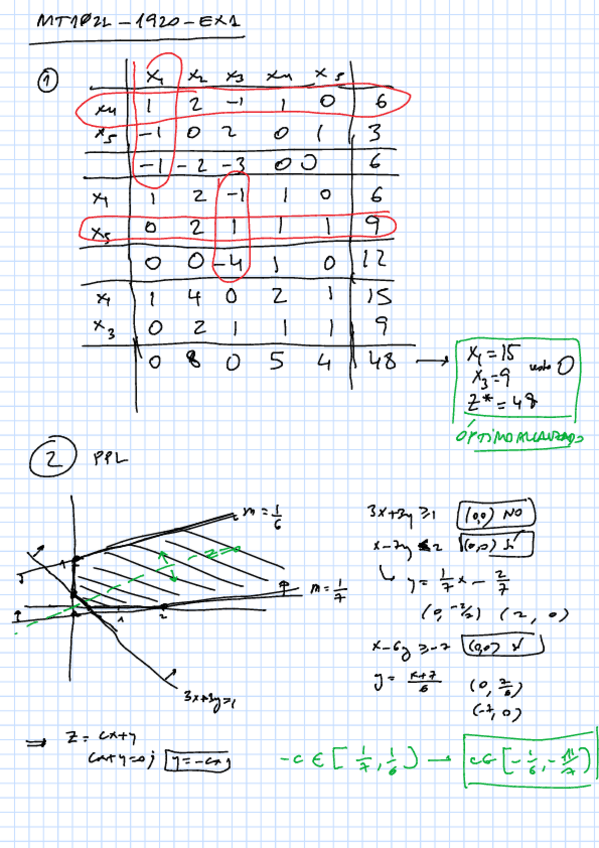 MT1022-1920-EX1
①
x1 x2 x3 x4 x5
x4 1 2 -1 1 0 6
x5 -1 0 2 0 1 3
-1 -2 -3 0 0 6
x1 1 2 -1 1 0 6
x5 0 2 1 1 1 9
0 0 -4 1 0 12
x1 1 4 0 2 1 15
x3 0 2 1 1 1 9
0 8 0 5 4 48 →
x1=15
x3=9 resto 0
z*=48
ÓPTIMO ALCANZADO
② PPL
m=1/6
m=1/7
1 2
3x+3y≥1
3x+3y≥1 (0,0) NO
x-7y≤2 (0,0) Sí
y=1/7x-2/7
(0,-2/7) (2,0)
(0,0)
y=(x+7)/6
(-7,0)
⇒ z=cx+y
cx+y=0; y=-cx;
-c∈[1/7,1/6) →